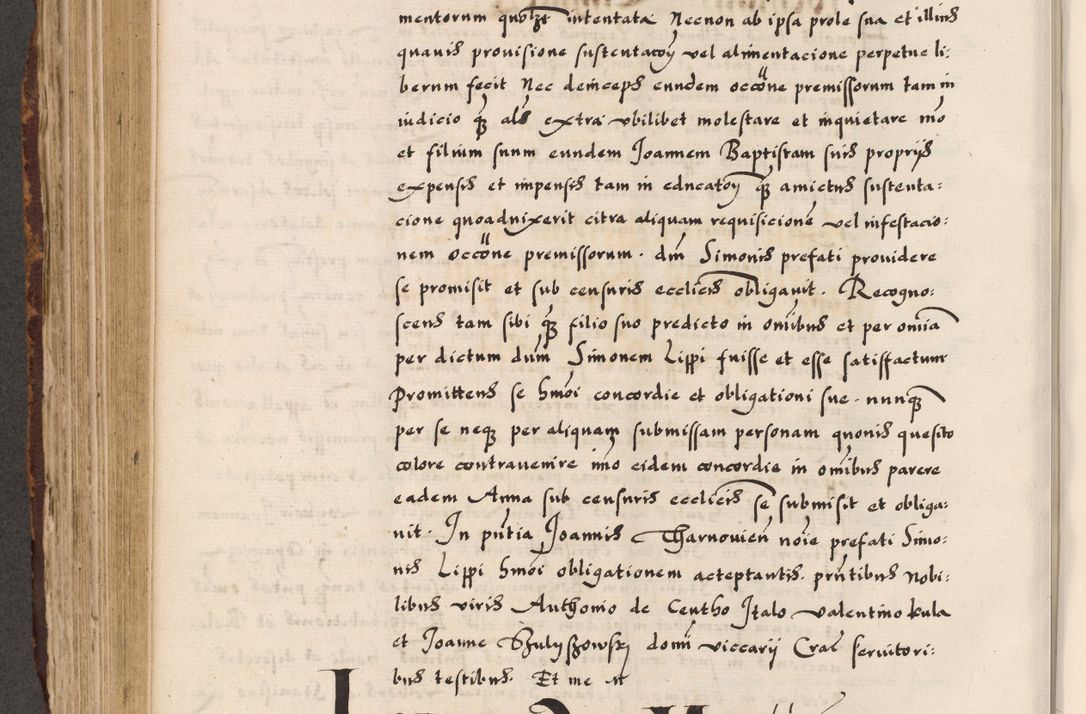 mentorum quolzt intentata Necnon ab ipsa prole sua et illius
quavis provisione sustentacoy vel alimentacione perpetue li:
berum fecit Nec deinceps eundem occone premissorum tam in
iudicio q als extra ubilibet molestare et inquietare imo
et filium suum eundem Joannem Baptistam suis proprijs
expensis et impensis tam in educatoy q amictus sustenta:
cione quoadvixerit citra aliquam requisicione vel infestacio:
nem occone premissorum. dni Simonis prefati providere
se promisit et sub censuris ecclicis obligavit. Recogno:
scens tam sibi q filio suo predicto in omibus et per omia
per dictum dum Simonem Lippi fuisse et esse satisfactum
Promittens se hmoi concordie et obligationi sue. nunq
per se neq per aliquam submissam personam quovis quesito
colore contravenire imo eidem concordie in omibus parere
eadem Anna sub censuris ecclicis se submisit et obliga:
vit. In pntia Joannis Tharnovien noie prefati Simo:
nis Lippi hmoi obligationem acceptantis. pntibus Nobi:
libus viris Anthonio de Centho Italo Valentino kula
et Joanne Szulyszowsky domi viccarij Cral servitori:
bus testibus. Et me